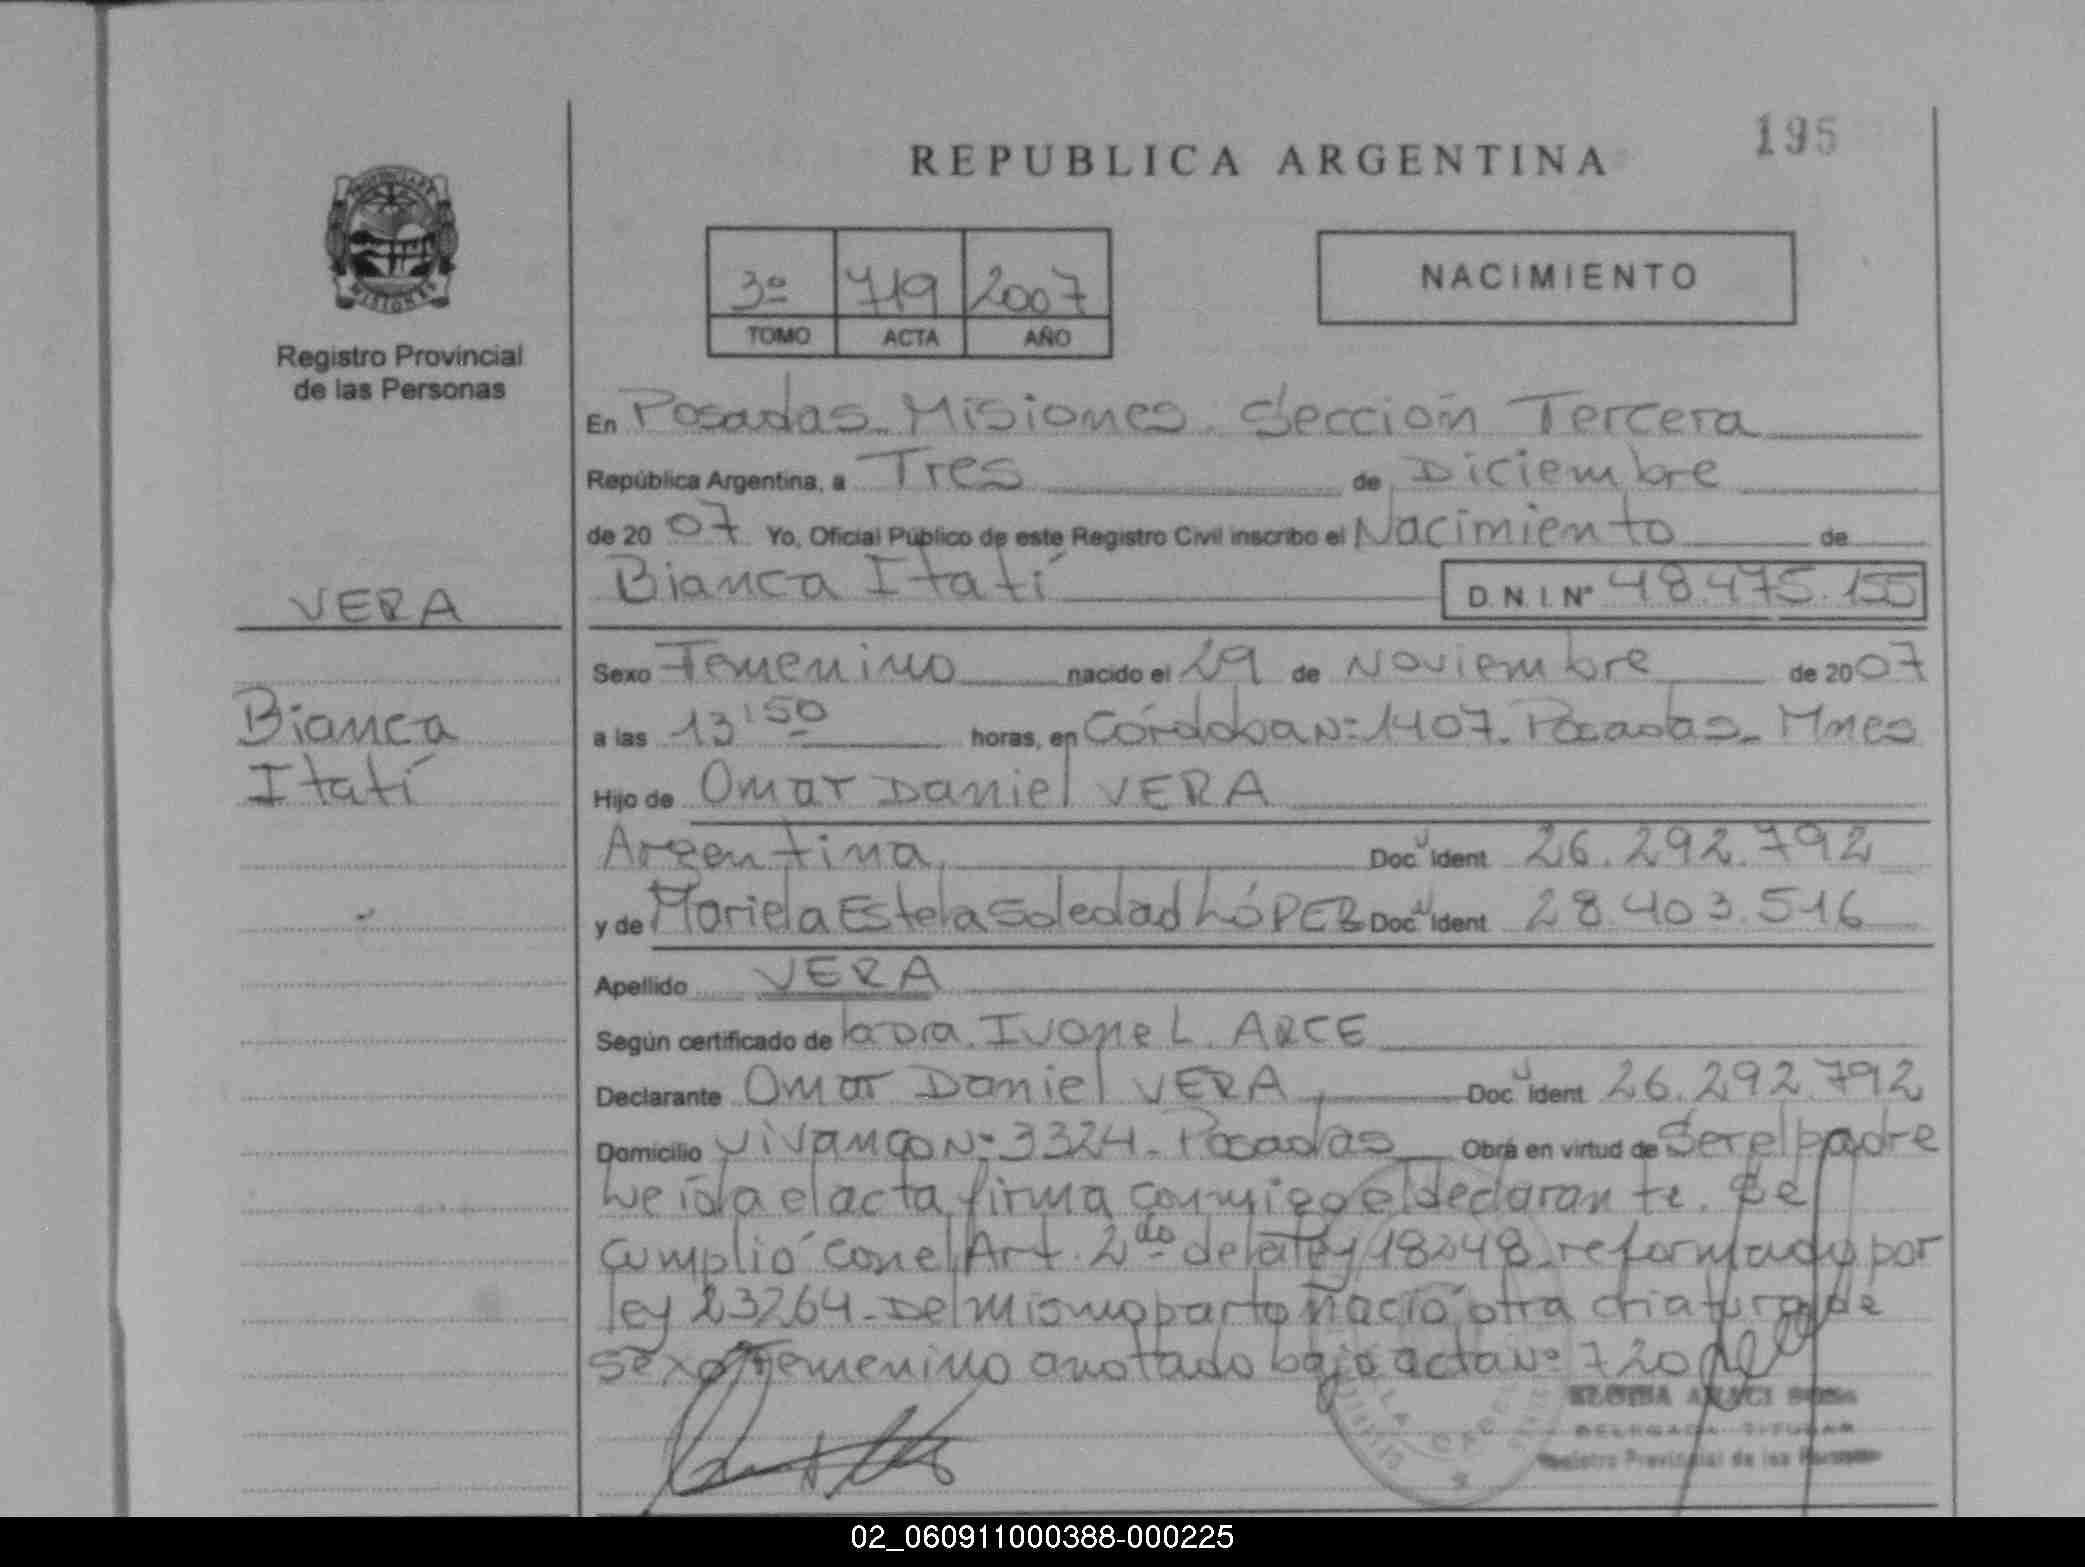 195
REPUBLICA ARGENTINA
PROVINCIA DE MISIONES
Registro Provincial
de las Personas
3º 719 2007
TOMO ACTA AÑO
NACIMIENTO
En Posadas - Misiones - Sección Tercera
República Argentina, a Tres de Diciembre
de 20 07 Yo, Oficial Público de este Registro Civil inscribo el Nacimiento de
VERA
Bianca Itatí D.N.I.Nº 48.475.155
Sexo Femenino nacido el 29 de Noviembre de 2007
Bianca
Itatí
a las 13:50 horas, en Córdoba Nº 1407 - Posadas - Mnes
Hijo de Omar Daniel VERA
Argentina Doc U Ident 26.292.792
y de Mariela Estela Soledad LÓPEZ Doc U Ident 28.403.516
Apellido VERA
Según certificado de la Dra. Ivone L. ARCE
Declarante Omar Daniel VERA Doc U Ident 26.292.792
Domicilio Vivanco Nº 3324 - Posadas Obra en virtud de Ser el padre
Leída el acta firma conmigo el declarante. Se
cumplió con el Art. 2do de la Ley 18248 - reformado por
ley 23264 - Del mismo parto nació otra criatura de
sexo Femenino anotado bajo acta Nº 720
DELEGADA TITULAR
Registro Provincial de las Personas
02_060911000388-000225